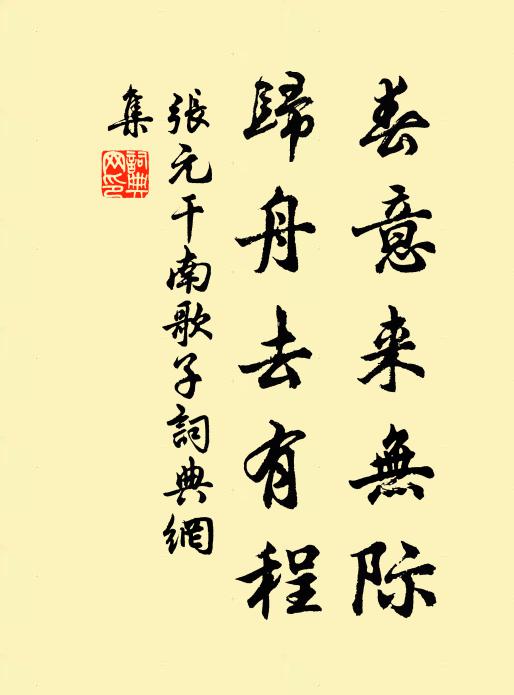 春意来無际
歸舟去有程
張元干南歌子詞典網
集
詞典
网印